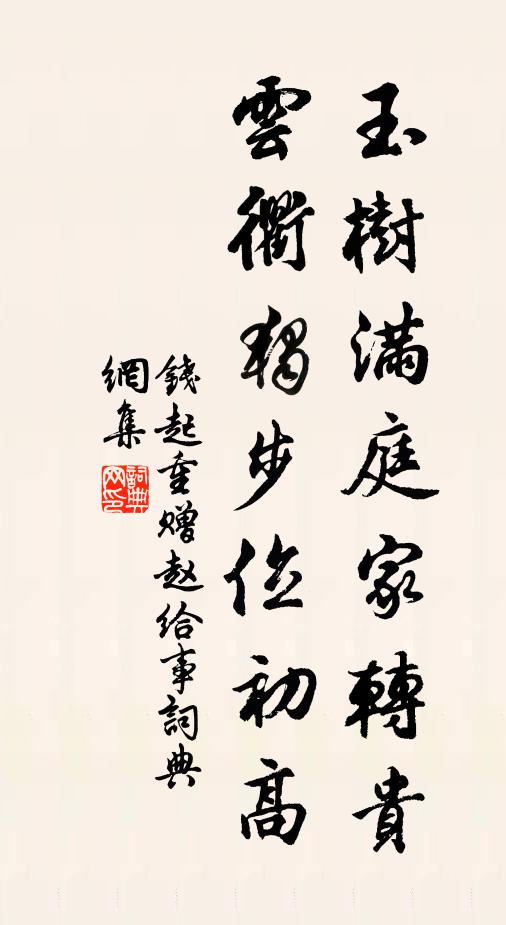 玉樹滿庭家轉貴
雲衢獨步位初高
錢起重贈赵給事詞典
網集
詞典
网印